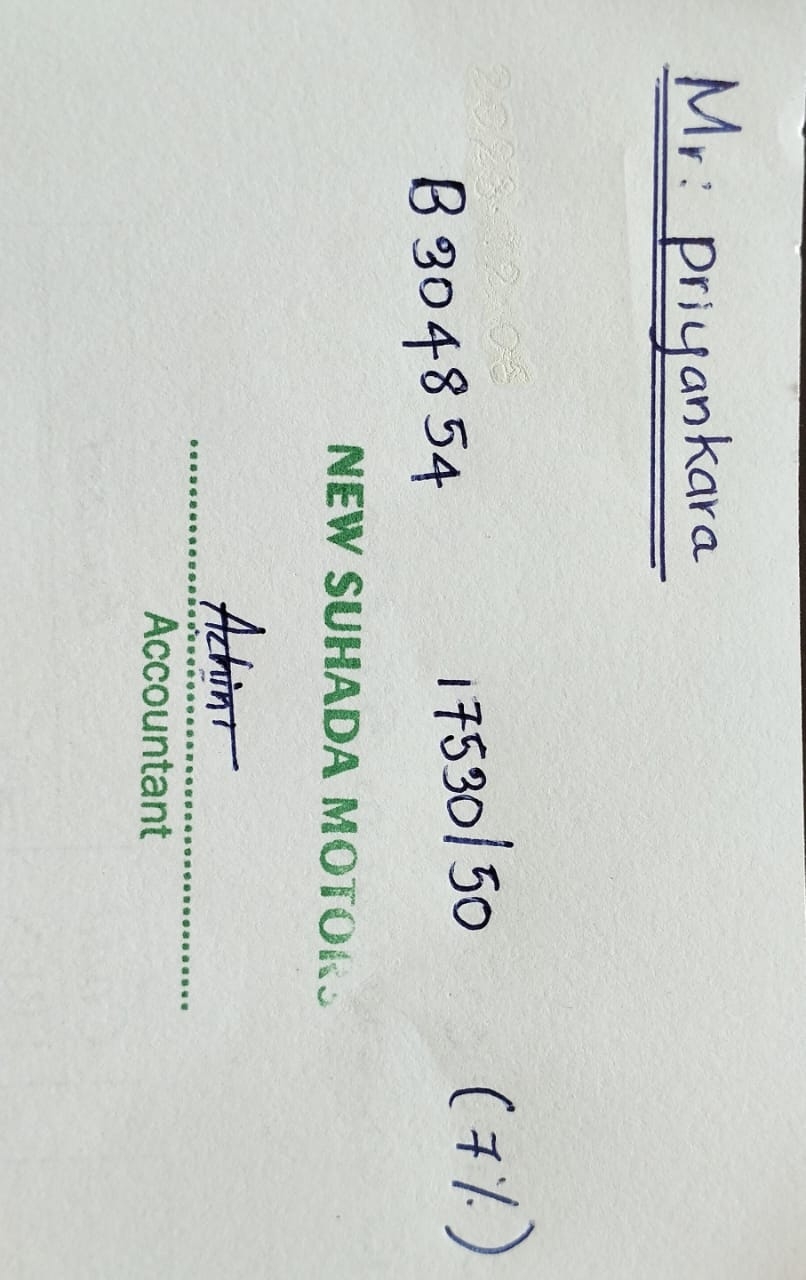 Mr: Priyankara
2023-12-08
B 304854 17530/50 (7%)
NEW SUHADA MOTORS
Accountant